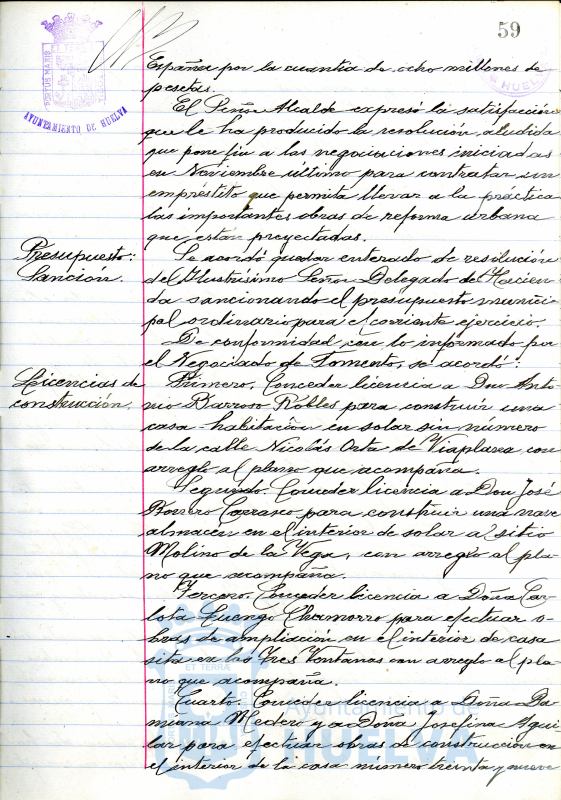 59
PORTUS MARIS
AYUNTAMIENTO DE HUELVA
España por la cuantia de ocho millones de
pesetas.
El Señor Alcalde expresó la satisfacción
que le ha producido la resolución aludida
que pone fin a las negociaciones iniciadas
en Noviembre último para contratar un
empréstito que permita llevar a la práctica
las importantes obras de reforma urbana
que están proyectadas.
Presupuesto:
Sanción.
Se acordó quedar enterado de resolución
del Ilustrísimo Señor Delegado de Hacien-
da sancionando el presupuesto munici-
pal ordinario para el corriente ejercicio.
De conformidad con lo informado por
el Negociado de Fomento, se acordó:
Licencias de
construcción.
Primero. Conceder licencia a Don Anto-
nio Barroso Robles para construir una
casa habitación en solar sin número
de la calle Nicolás Orta de Viaplana con
arreglo al plano que acompaña.
Segundo. Conceder licencia a Don José
Borrero Carrasco para construir una nave
almacén en el interior de solar al sitio
Molino de la Vega, con arreglo al pla-
no que acompaña.
Tercero. Conceder licencia a Doña Car-
lota Luengo Chamorro para efectuar o-
bras de ampliación en el interior de casa
sita en las Tres Ventanas con arreglo al pla-
no que acompaña.
Cuarto. Conceder licencia a Doña Da-
miana Medero y a Doña Josefina Agui-
lar para efectuar obras de construcción en
el interior de la casa número treinta y nueve
Ayuntamiento de
HUELVA